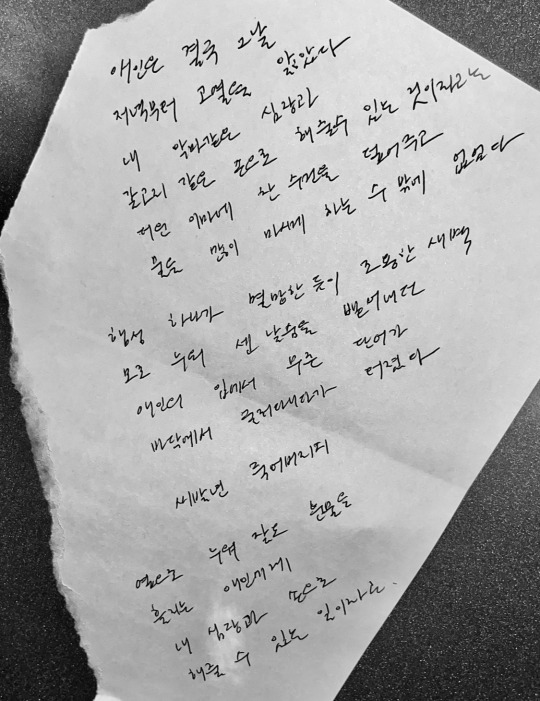 애인은 결국 그날
저녁부터 고열을 앓았다
내 악마같은 심장과
갈고리 같은 손으로 해줄수 있는 것이라고는
더운 이마에 찬 수건을 덮어주고
물을 많이 마시게 하는 수 밖에 없었다
행성 하나가 멸망한 듯이 조용한 새벽
모로 누워 센 날숨을 뱉어내던
애인의 입에서 무른 단어가
바닥에서 굴러다니다가 터졌다
씨발년 죽어버리지
옆으로 누워 잘도 눈물을
흘리는 애인에게
내 심장과 손으로
해줄 수 있는 일이라곤.